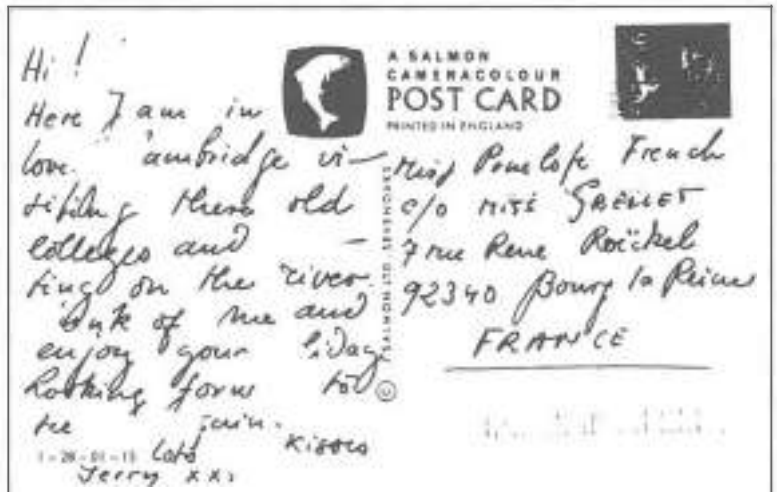 Hi !
Here I am in
love. ambridge vi-
siting these old
colleges and -
ting on the river.
ink of me and
enjoy your liday
Looking forw to
see jain.
Lots Kisses
Jerry xxx
1-28-01-15
A SALMON
CAMERACOLOUR
POST CARD
PRINTED IN ENGLAND
Miss Penelope French
c/o MISS GRELLET
7 rue René Roëckel
92340 Bourg la Reine
FRANCE